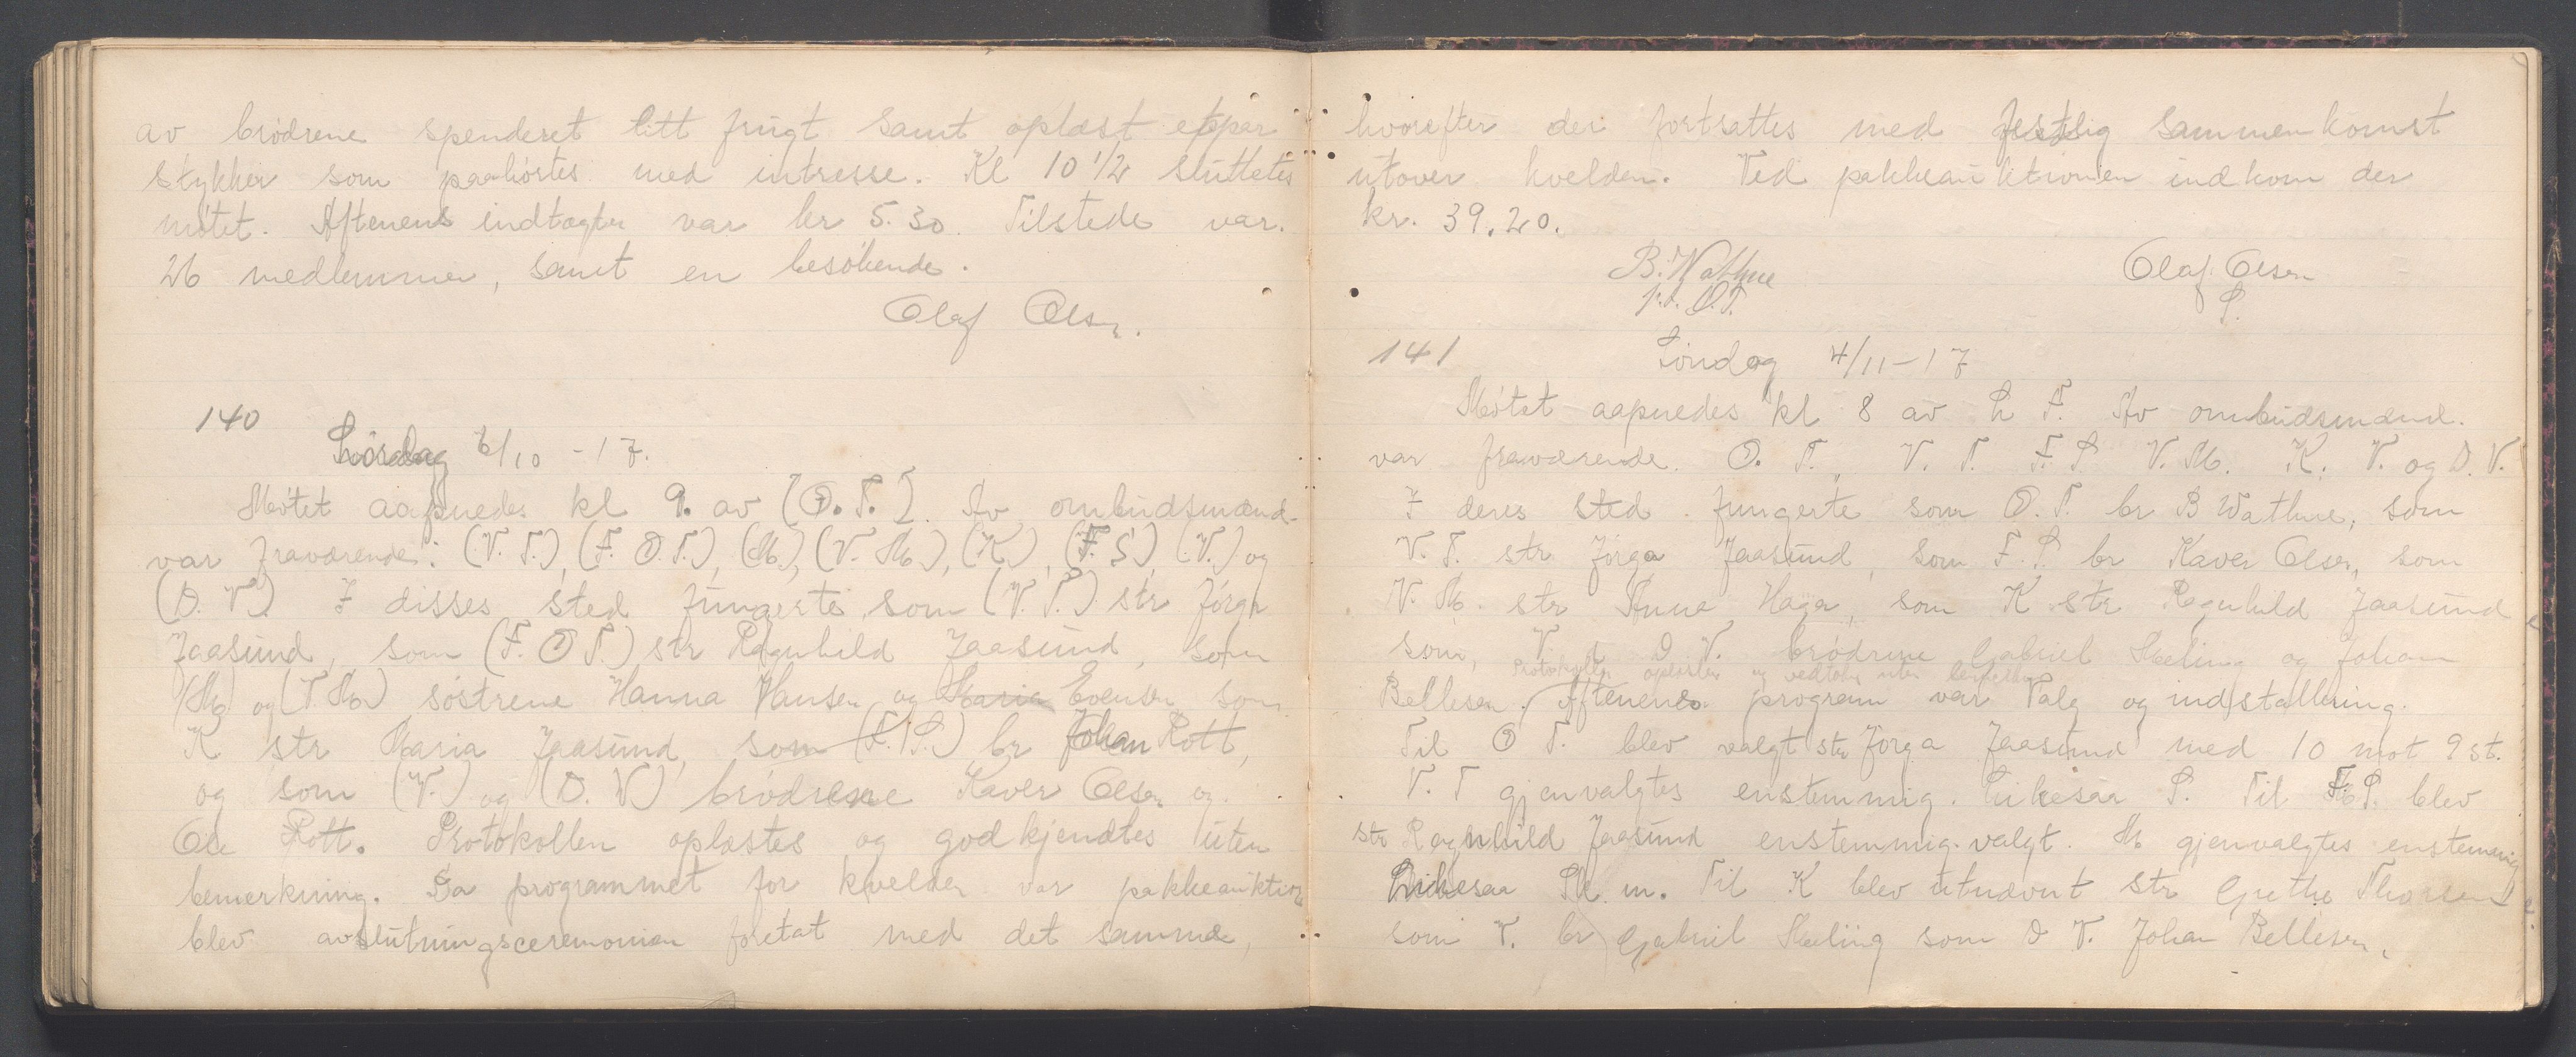 av brødrene spenderet litt frugt samt oplæst etpar
stykker som paahørtes med intresse. Kl 10 1/2 sluttetes
møtet. Aftenens indtægter var kr 5.30. Tilstede var.
26 medlemmer, samt en besøkende.
Olaf Olsen.
140
Lørdag 6/10 - 17.
Møtet aapnedes kl 9. av (O.T.). Av ombudsmænd-
var fraværende: (V.T.), (F.O.T.), (M.), (V.M.), (K), (F.S), (V.) og
(D.V.) I disses sted fungerte som (V.T.) str Jørga
Jaasund, som (F.O T.) str Ragnhild Jaasund, som
(M) og (V.M) søstrene Hanna Hansen og Maria Evensen som
K str Maria Jaasund, som (F.S.) br Johan Rott,
og som (V.) og (D.V) brødrene Kaver Olsen og
Ole Rott. Protokollen oplæstes og godkjendtes uten
bemerkning. Da programmet for kvelden var pakkeauktion
blev avslutningsceremonien foretat med det samme,
hvorefter der fortsattes med festlig sammenkomst
utover kvelden. Ved pakkeauktionen indkom der
kr. 39.20.
B. Wathne Olaf Olsen
p.t. O.T. S.
141 Søndag 4/11 - 17
Møtet aapnedes kl 8 av h F. Av ombudsmænd.
var fraværende. O. T., V. T. F. S V. M. K. V. og D. V.
I deres sted fungerte som O. T. br B Wathne, som
V. T. str Jørga Jaasund, som F. S. br Kaver Olsen, som
V. M. str Anna Haga, som K str Ragnhild Jaasund
som, V D V. brødrene Gabriel Meling og Johan
Protokollen oplæstes og vedtokes uten bemerkning
Bellesen. Aftenens program var Valg og indstallering.
Til O T. blev valgt str Jørga Jaasund med 10 mot 9 st.
V. T gjenvalgtes enstemmig. Likesaa S. Til F.S. blev
str Ragnhild Jaasund enstemmig valgt. M gjenvalgtes enstemmig
Likesaa Sk. m. Til K blev utnævnt str Grethe Thorsen
som V. br Gabriel Meling som D V. Johan Bellesen.